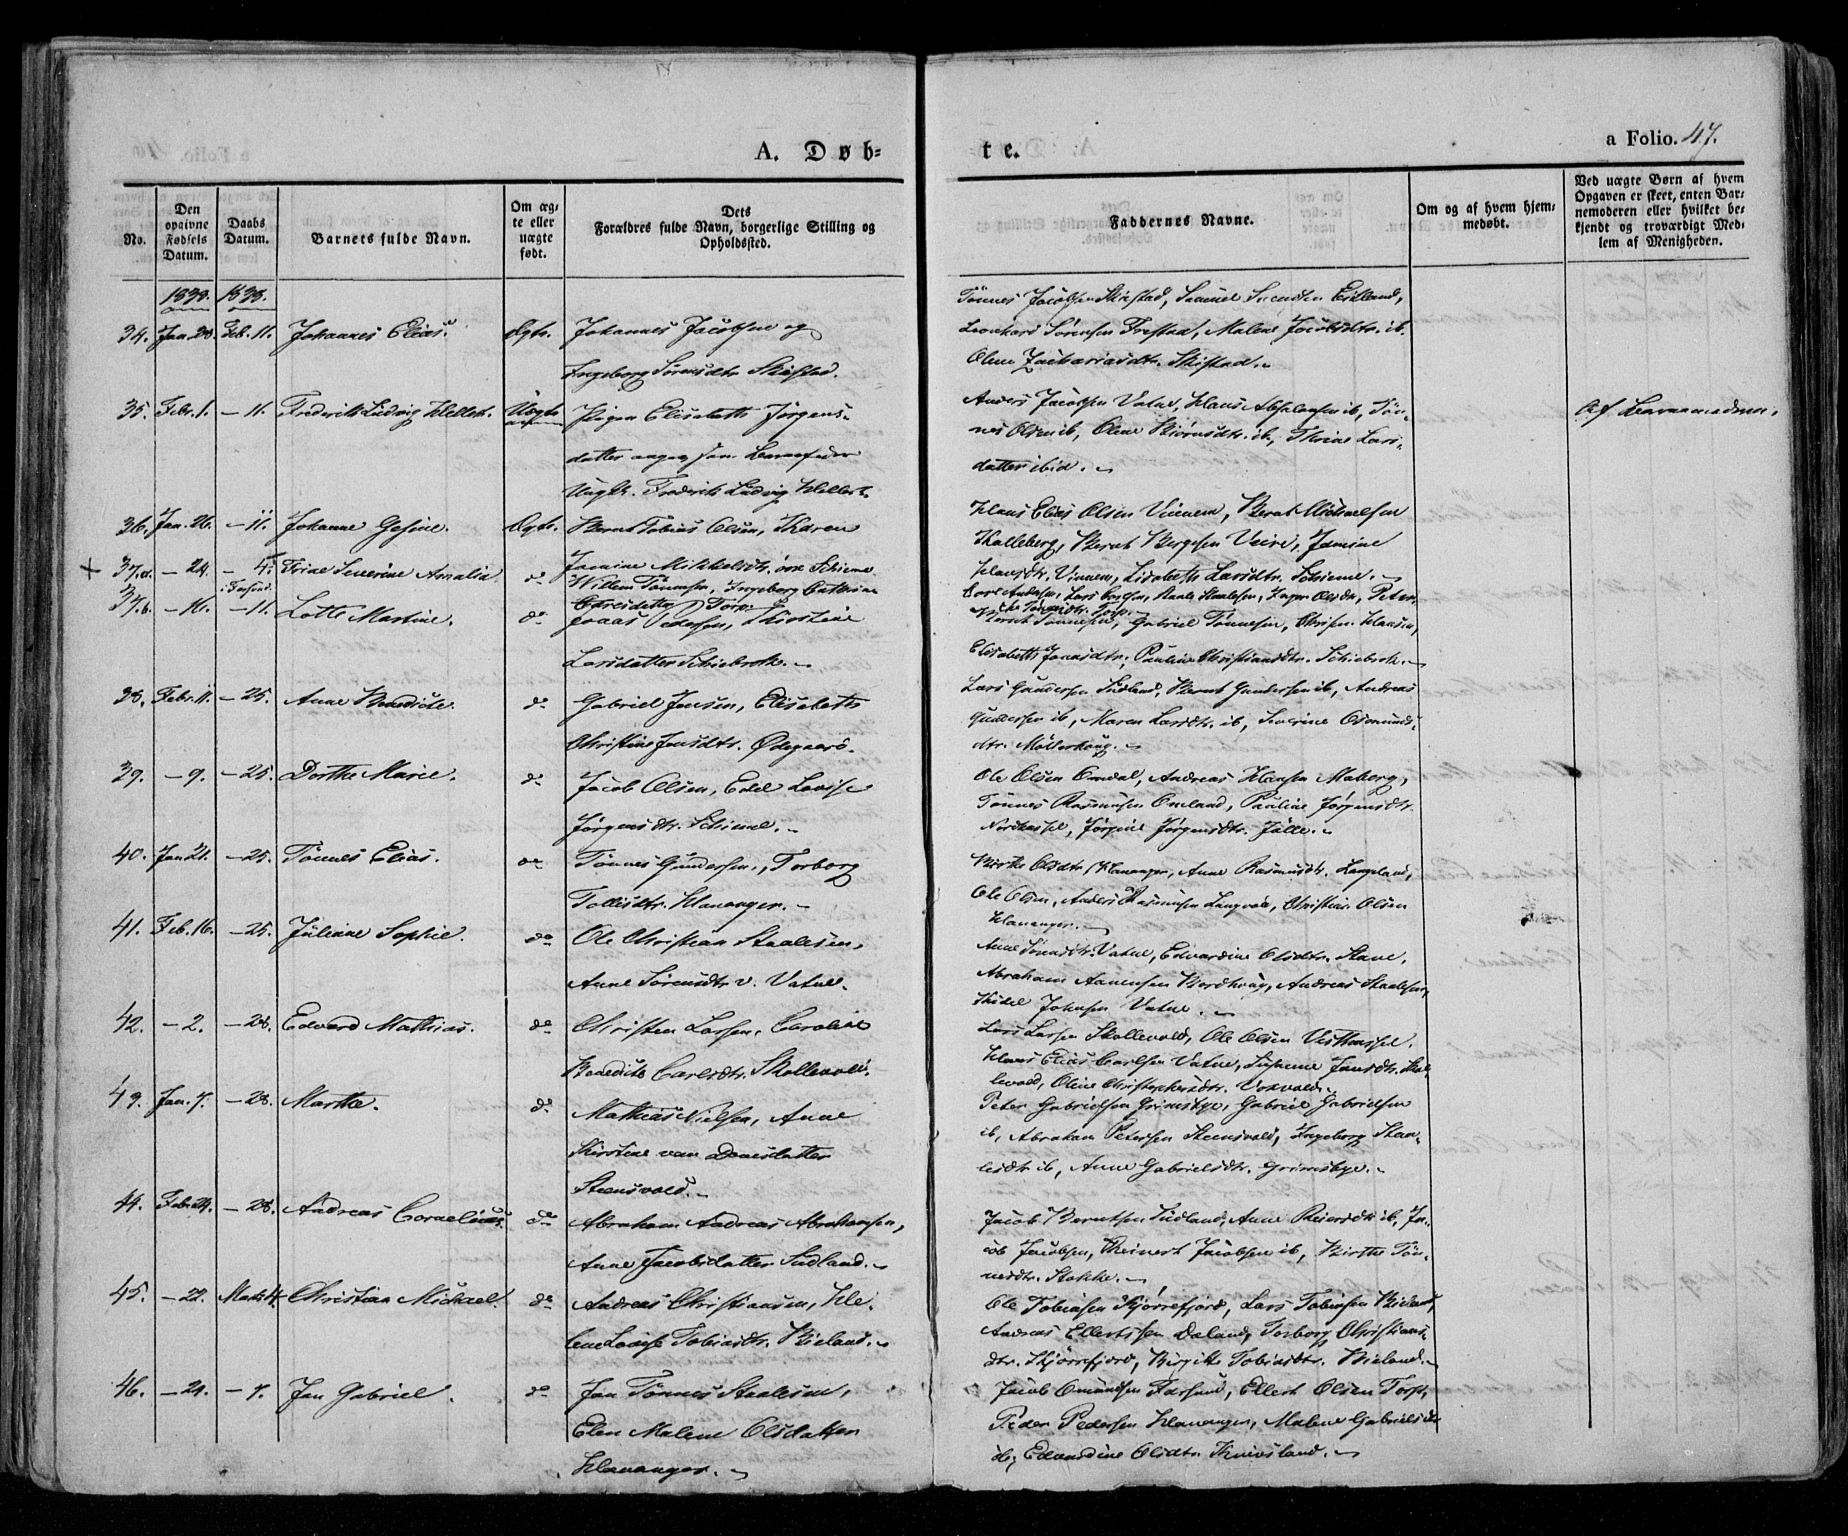 A. Døb-
te.
a Folio. 47.
No.
Den opgivne Fødsels Datum.
Daabs Datum.
Barnets fulde Navn.
Om ægte eller uægte født.
Dets Forældres fulde Navn, borgerlige Stilling og Opholdssted.
Faddernes Navne.
Om og af hvem hjemmedøbt.
Ved uægte Børn af hvem Opgaven er skeet, enten Barnemoderen eller hvilket bekjendt og troværdigt Medlem af Menigheden.
1838. 1838.
34. Jan. 28. Feb. 11. Johannes Elias. Ægte. Johannes Jacobsen og
Ingeborg Sørensdtr.
Tønnes Jacobsen Samuel Svendsen Eitland,
Leonhard Sørensen Malene Jacobsdtr. ib.
Olene Zachariasdtr.
35. Febr. 1. - 11. Frederik Ludvig Uægte Pigen Elisabeth Jørgens-
datter
Ungk. Frederik Ludvig
Anders Jacobsen Vatne, Hans Absalonsen ib, Tøn-
nes Olsen ib, Olene Biørnsdtr. ib, Thrine Lars-
datter ibid.
Af Barnemoderen.
36. Jan. 26. - 11. Johanne Gesine. Ægte. Bernt Tobias Olsen, Karen
Jamine Mikkelsdtr.
Hans Elias Olsen Vinnem, Bernt Michaelsen
Halleberg, Bernt Bergesen Veire, Jamine
Hansdtr. Vinnem, Lisabeth Larsdtr.
+ 37.a. - 24. - 4. Trine Severine Amalia do Willem Tønnesen, Ingeborg Cathrine
Torp.
37.b. - 16. - 11. Lotte Martine. do Jonas Pedersen, Kirstine
Larsdatter Schiebrok.
Bernt Tønnesen, Gabriel Tønnesen, Hansen,
Elisabeth Jonasdtr, Pauline Christiansdtr. Schiebrok.
38. Febr. 11. - 25. Anne Benedicte. do Gabriel Jensen, Elisabeth
Christine Jensdtr. Ødegaard.
Lars Gundersen Sudland, Bernt Gundersen ib, Andreas
Gundersen ib, Maren Larsdtr. ib, Severine Osmunds-
dtr. Møllerhaug.
39. - 9. - 25. Dorthe Marie. do Jacob Olsen, Edel Lovise
Jørgensdtr.
Ole Olsen Omdal, Andreas Hansen Maberg,
Tønnes Rasmusen Omland, Pauline Jørgensdtr.
Nordhassel, Jørgine Jørgensdtr. Jølle.
40. Jan 21. - 25. Tønnes Elias. do Tønnes Gundersen, Torborg
Tollisdtr. Hananger.
Birthe Olsdtr Hananger, Anne Rasmusdtr. Langeland,
Ole Olsen, Anders Rasmusen Langvold, Christian Olsen
Hananger.
41. Feb. 16. - 25. Juliane Sophie. do Ole Christian Staalesen,
Anne Sørensdtr. v. Vatne.
Anne Vatne, Edvardine Olsdtr. Stave,
Abraham Aanensen Bordhaug, Andreas Staalesen,
Johnsen Vatne.
42. - 2. - 28. Edvard Mathias. do Christen Larsen, Caroline
Benedicte Carlsdtr. Skollevold.
Lars Larsen Skollevold, Ole Olsen Vesthassel,
Hans Elias Carlsen Vatne, Susanne Jansdtr. Skol-
levold, Oline Christophersdtr.
43. Jan. 7. - 28. Marthe. do Mathias Nielsen, Anne
Kirstine
Steensvold.
Peter Gabrielsen Grimsbye, Gabriel Gabrielsen
ib, Abraham Petersen Steensvold, Ingeborg Staa-
lesdtr ib, Anne Gabrielsdtr. Grimsbye.
44. Febr. 24. - 28. Andreas Cornelius. do Abraham Andreas Abrahamsen,
Anne Jacobsdatter Sudland.
Jacob Berntsen Sudland, Anne Reiersdtr ib, Ja-
cob Jacobsen, Reinert Jacobsen ib, Birthe Tøn-
nesdtr. Stokke.
45. - 22. Marts 4. Christian Michael. do Andreas Christiansen, He-
lene Lovise Tobiasdtr. Bieland.
Ole Tobiasen Kjørrefjord, Lars Tobiasen Bieland,
Andreas Ellertssen Daland, Torborg Christians-
dtr. Kjørrefjord, Birgitte Tobiasdtr. Bieland.
46. - 21. - 7. Jan Gabriel. do Jan Tønnes Staalesen,
Elen Malene Olsdatter
Hananger.
Jacob Omundsen Farsund, Ellert Olsen Torp,
Peder Pedersen Hananger, Malene Gabrielsdtr
ib, Edvardine Olsdtr.